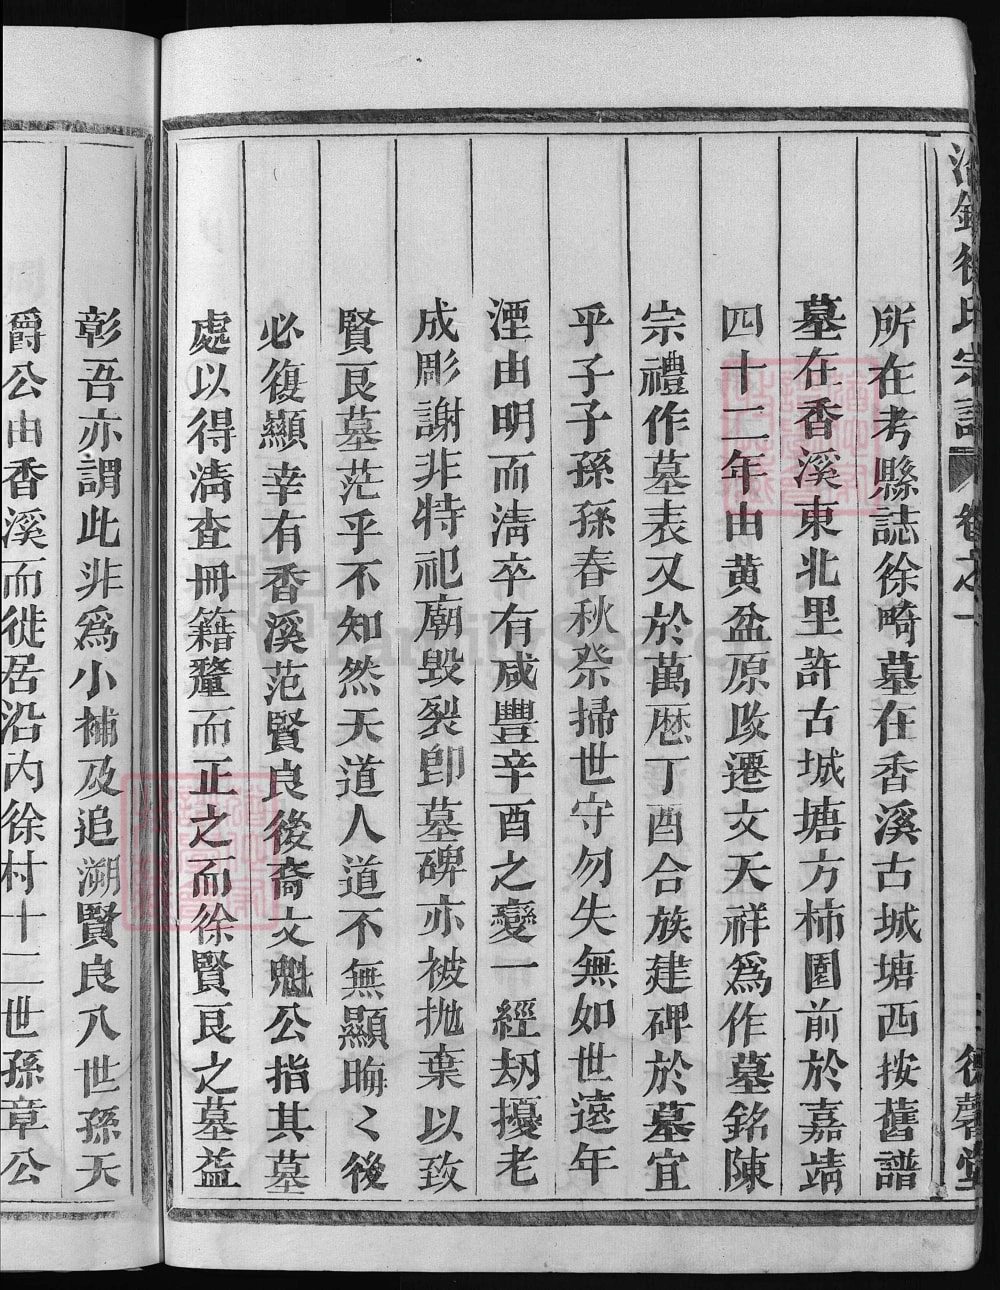 徐氏宗譜 卷之一
所在考縣誌徐畸墓在香溪古城塘西按舊譜
墓在香溪東北里許古城塘方柿園前於嘉靖
四十二年由黃盆原改遷文天祥爲作墓銘陳
宗禮作墓表又於萬厯丁酉合族建碑於墓宜
乎子子孫孫春秋祭掃世守勿失無如世遠年
湮由明而淸卒有咸豐辛酉之變一經刼擾老
成彫謝非特祀廟毀裂卽墓碑亦被拋棄以致
賢良墓茫乎不知然天道人道不無顯晦〻後
必復顯幸有香溪范賢良後裔文魁公指其墓
處以得淸查冊籍釐而正之而徐賢良之墓益
彰吾亦謂此非爲小補及追溯賢良八世孫天
爵公由香溪而徙居沿內徐村十二世孫章公